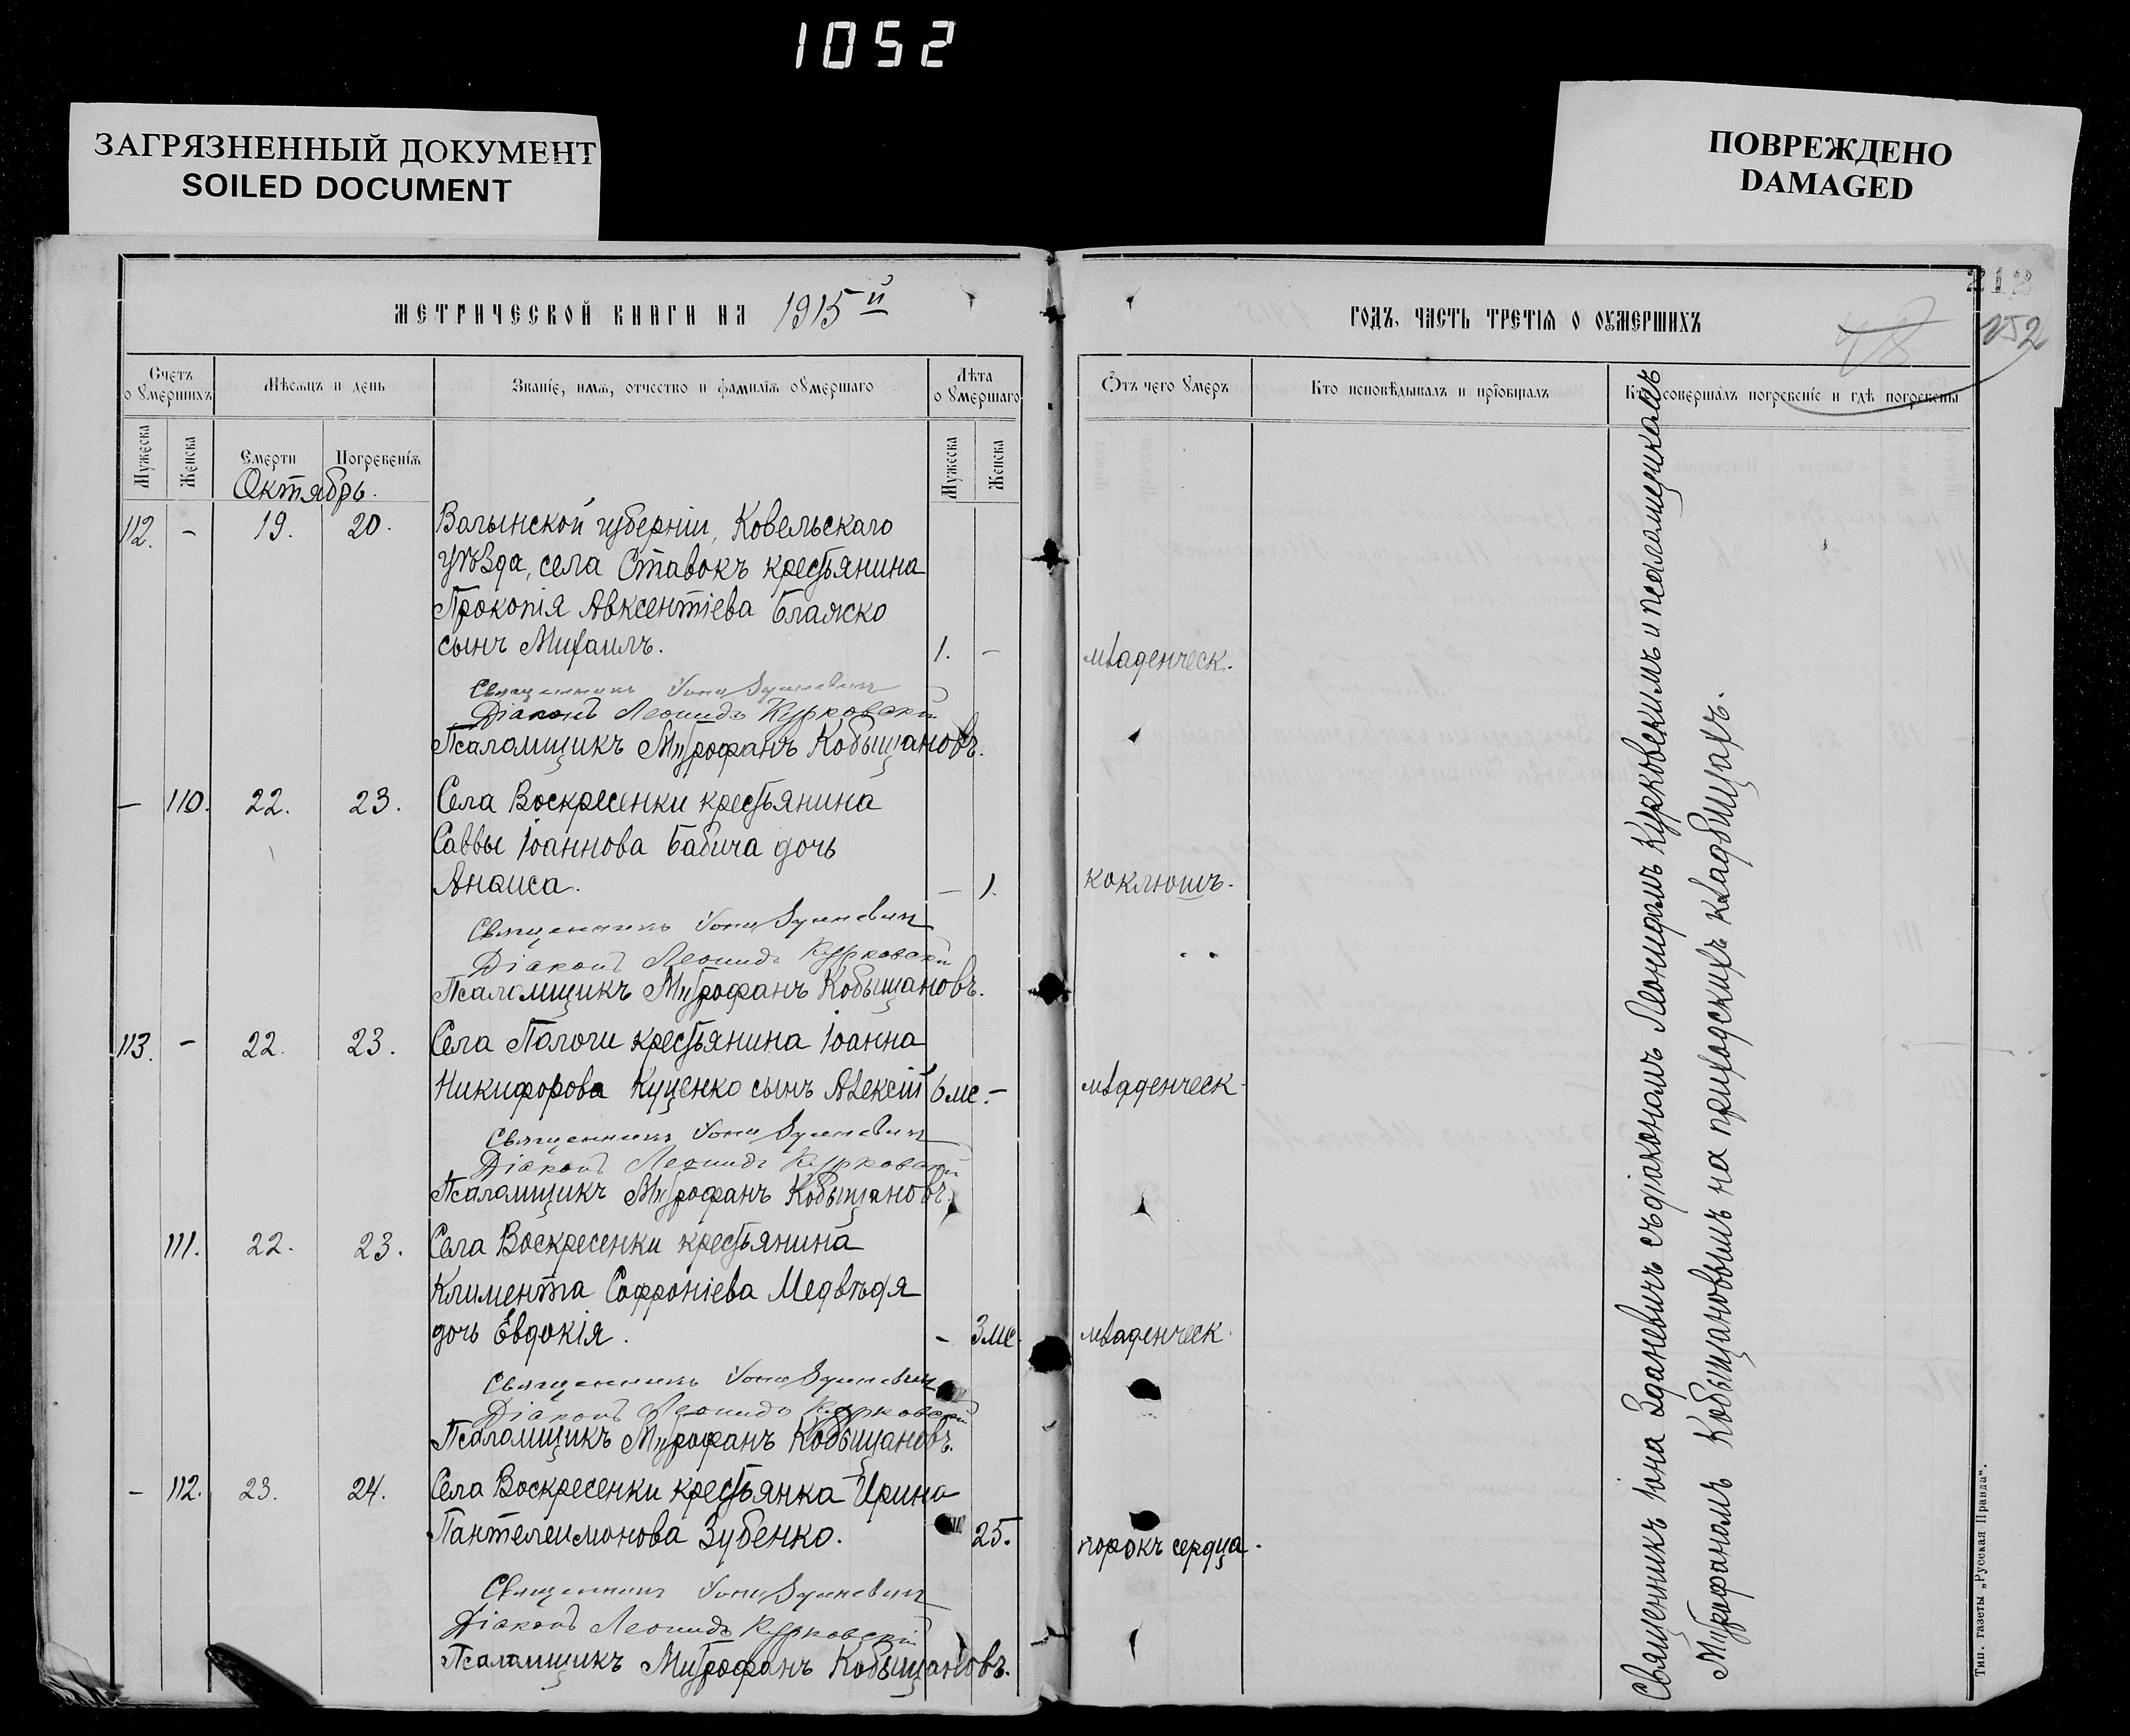 1052
ЗАГРЯЗНЕННЫЙ ДОКУМЕНТ
SOILED DOCUMENT
ПОВРЕЖДЕНО
DAMAGED
212
252
метрической книги на 1915й
годъ, часть третїѧ о оумершихъ
Счетъ о оумершихъ
Мѣсѧцъ и день
Званїе, имѧ, отчество и фамилїѧ оумершаго
Лѣта о оумершаго
Ѿтъ чего оумеръ
Кто исповѣдывалъ и прїобщалъ
Кто совершалъ погребенїе и гдѣ погребены
Мужеска
Женска
Смерти
Погребенїѧ
Мужеска
Женска
Октябрь.
112. - 19. 20. Волынской губерніи, Ковельскаго
уѣзда, села Ставокъ крестьянина
Прокопія Авксентіева Блажко
сынъ Михаилъ. 1. - младенческ.
Священникъ Іона Зданевичъ
Діаконъ Леонидъ Курковскій
Псаломщикъ Митрофанъ Кобыщановъ.
- 110. 22. 23. Села Воскресенки крестьянина
Саввы Іоаннова Бабича дочь
Анаиса. - 1. коклюшъ.
Священникъ Іона Зданевичъ
Діаконъ Леонидъ Курковскій
Псаломщикъ Митрофанъ Кобыщановъ.
113. - 22. 23. Села Пологи крестьянина Іоанна
Никифорова Куценко сынъ Алексій 6 мс. - младенческ.
Священникъ Іона Зданевичъ
Діаконъ Леонидъ Курковскій
Псаломщикъ Митрофанъ Кобыщановъ.
111. 22. 23. Села Воскресенки крестьянина
Климента Софроніева Медвѣдя
дочь Евдокія. - 3 мс. младенческ.
Священникъ Іона Зданевичъ
Діаконъ Леонидъ Курковскій
Псаломщикъ Митрофанъ Кобыщановъ.
- 112. 23. 24. Села Воскресенки крестьянка Ирина
Пантелеимонова Зубенко. 25. порокъ сердца.
Священникъ Іона Зданевичъ
Діаконъ Леонидъ Курковскій
Псаломщикъ Митрофанъ Кобыщановъ.
Священникъ Іона Зданевичъ съ діакономъ Леонидомъ Курковскимъ и псаломщикомъ
Митрофаномъ Кобыщановымъ на приходскихъ кладбищахъ.
Тип. газеты „Русская Правда“.